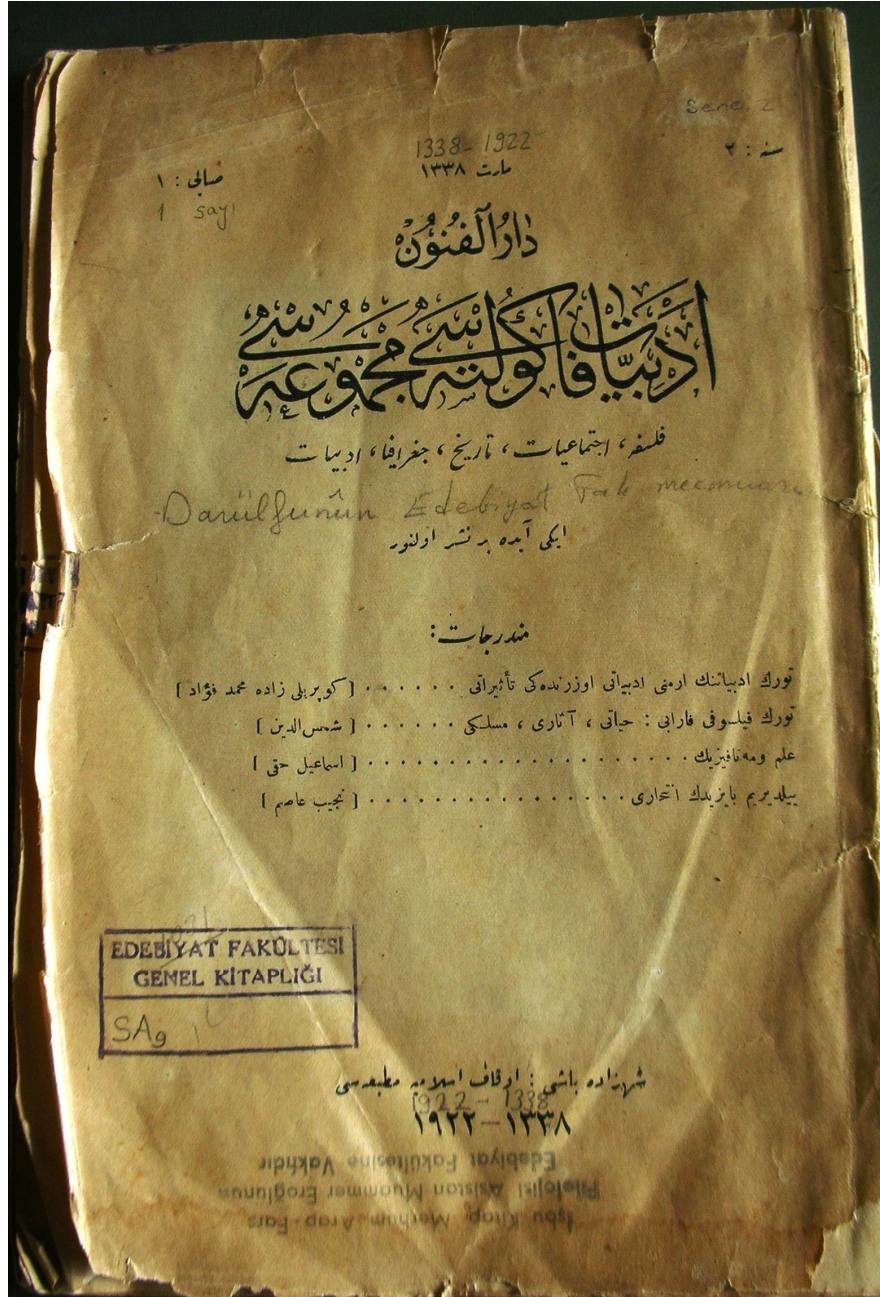 Sene. 2
1338-1922
سنه : ٢
مارت ١٣٣٨
صایی : ١
1 sayı
دار الفنون
ادبیات فاکولته سی مجموعه سی
فلسفه ، اجتماعیات ، تاریخ ، جغرافیا ، ادبیات
Darülfunûn Edebiyat Fak mecmuası
ایکی آیده بر نشر اولنور
مندرجات :
تورك ادبیاتنك ارمنی ادبیاتی اوزرنده‌کی تأثیراتی . . . . . . [ کوپریلی زاده محمد فؤاد ]
تورك فیلسوفی فارابی : حیاتی ، آثاری ، مسلکی . . . . . . [ شمس‌الدین ]
علم ومه‌تافیزیك . . . . . . . . . . . . . . . . . . . [ اسماعیل حقی ]
ییلدیریم بایزیدك انتحاری . . . . . . . . . . . . . . . [ نجیب عاصم ]
EDEBİYAT FAKÜLTESİ
GENEL KİTAPLIĞI
SA9
شهزاده باشی : اوقاف اسلامیه مطبعه‌سی
1922-1338
١٣٣٨—١٩٢٢
İşbu Kitap Merhum Arap-Fars
Filolojisi Asistan Muammer Eroğlunun
Edebiyat Fakültesine Vakfıdır